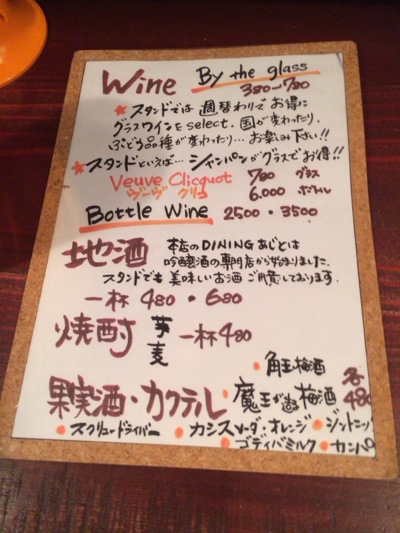 Wine By the glass
380-780
★スタンドでは週替わりでお得に
グラスワインをselect。国が変わったり、
ぶどう品種が変わったり…お楽しみ下さい!!
★スタンドといえば…シャンパンがグラスでお得!!
Veuve Clicquot 780 グラス
ヴーヴ クリコ 6.000 ボトル
Bottle Wine 2500・3500
地酒 本店のDINING あじとは
吟醸酒の専門店から始まりました。
スタンドでも美味しいお酒ご用意しております。
一杯 480・680
焼酎 芋 麦 一杯480
・角玉梅酒
果実酒・カクテル 魔王がある梅酒 各480
・スクリュードライバー ・カシスソーダ・オレンジ ・ジントニッ
・ゴディバミルク ・カンパ